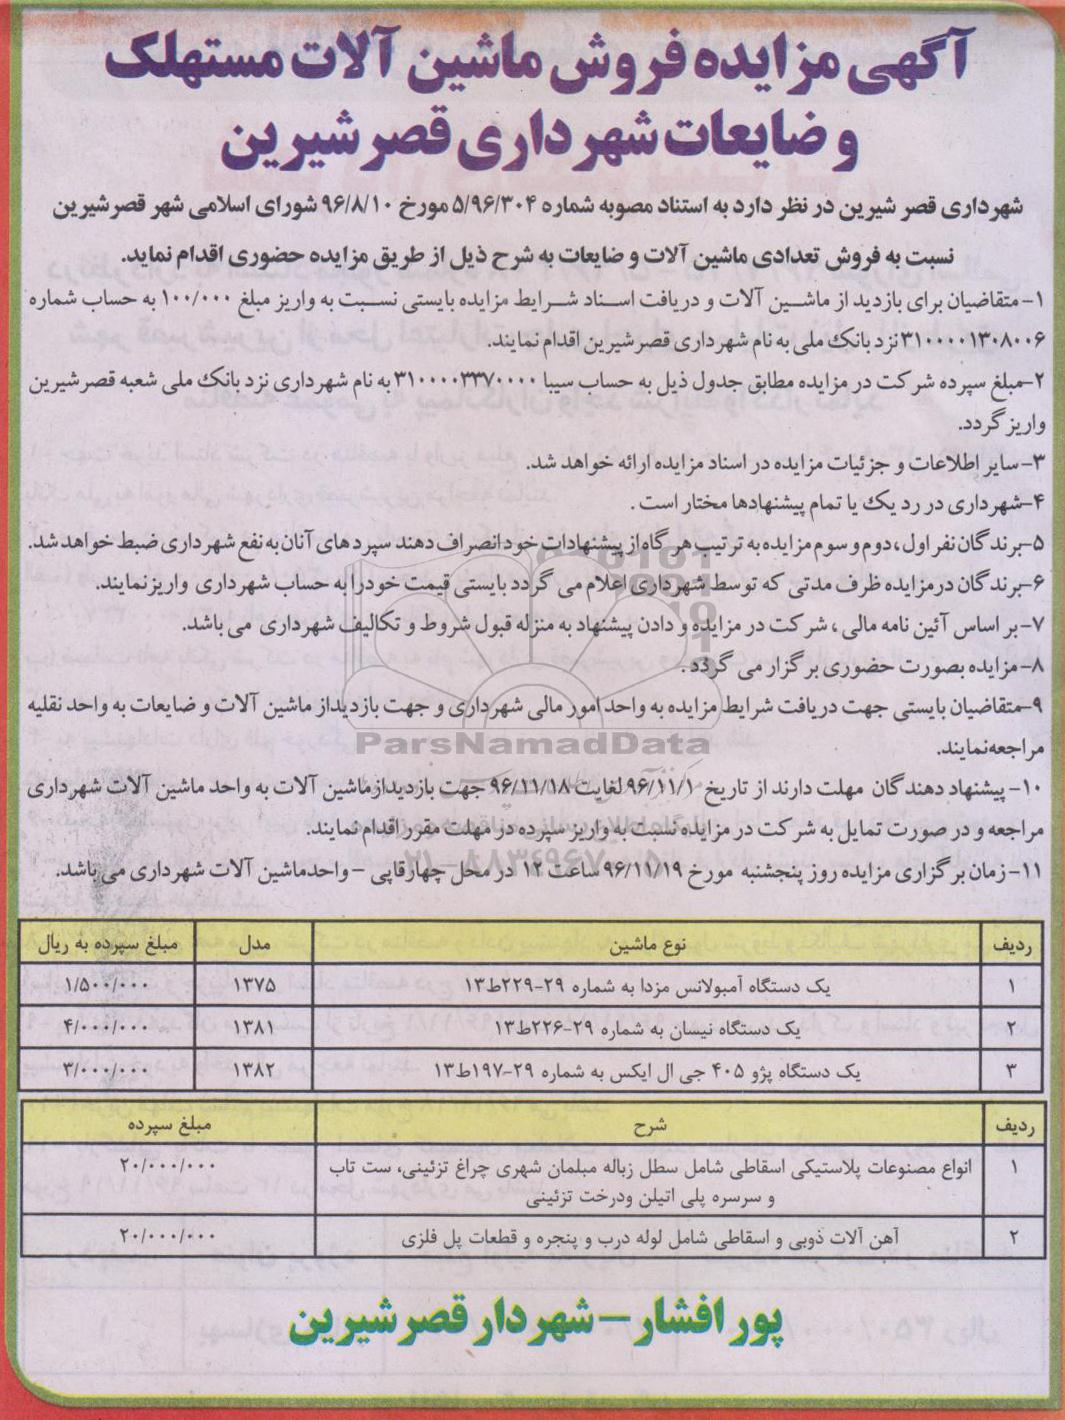 آگهی مزایده فروش ماشین آلات مستهلک
و ضایعات شهرداری قصرشیرین
شهرداری قصر شیرین در نظر دارد به استناد مصوبه شماره ۵/۹۶/۳۰۴ مورخ ۹۶/۸/۱۰ شورای اسلامی شهر قصرشیرین
نسبت به فروش تعدادی ماشین آلات و ضایعات به شرح ذیل از طریق مزایده حضوری اقدام نماید.
۱- متقاضیان برای بازدید از ماشین آلات و دریافت اسناد شرایط مزایده بایستی نسبت به واریز مبلغ ۱۰۰/۰۰۰ به حساب شماره
۳۱۰۰۰۰۱۳۰۸۰۰۶ نزد بانک ملی به نام شهرداری قصرشیرین اقدام نمایند.
۲-مبلغ سپرده شرکت در مزایده مطابق جدول ذیل به حساب سیبا ۳۱۰۰۰۰۳۳۷۰۰۰۰ به نام شهرداری نزد بانک ملی شعبه قصرشیرین
واریز گردد.
۳-سایر اطلاعات و جزئیات مزایده در اسناد مزایده ارائه خواهد شد.
۴-شهرداری در رد یک یا تمام پیشنهادها مختار است .
۵-برندگان نفر اول ، دوم و سوم مزایده به ترتیب هر گاه از پیشنهادات خود انصراف دهند سپرده‌های آنان به نفع شهرداری ضبط خواهد شد.
۶-برندگان درمزایده ظرف مدتی که توسط شهرداری اعلام می گردد بایستی قیمت خودرا به حساب شهرداری واریزنمایند.
۷-بر اساس آئین نامه مالی ، شرکت در مزایده و دادن پیشنهاد به منزله قبول شروط و تکالیف شهرداری می باشد.
۸-مزایده بصورت حضوری برگزار می گردد .
۹-متقاضیان بایستی جهت دریافت شرایط مزایده به واحد امور مالی شهرداری و جهت بازدیداز ماشین آلات و ضایعات به واحد نقلیه
مراجعه‌نمایند.
۱۰- پیشنهاد دهندگان مهلت دارند از تاریخ ۹۶/۱۱/۱ لغایت ۹۶/۱۱/۱۸ جهت بازدیدازماشین آلات به واحد ماشین آلات شهرداری
مراجعه و در صورت تمایل به شرکت در مزایده نسبت به واریز سپرده در مهلت مقرر اقدام نمایند.
۱۱- زمان برگزاری مزایده روز پنجشنبه مورخ ۹۶/۱۱/۱۹ ساعت ۱۲ در محل چهارقاپی – واحدماشین آلات شهرداری می باشد.
ردیف نوع ماشین مدل مبلغ سپرده به ریال
۱ یک دستگاه آمبولانس مزدا به شماره ۲۹-۲۲۹ط۱۳ ۱۳۷۵ ۱/۵۰۰/۰۰۰
۲ یک دستگاه نیسان به شماره ۲۹-۲۲۶ط۱۳ ۱۳۸۱ ۴/۰۰۰/۰۰۰
۳ یک دستگاه پژو ۴۰۵ جی ال ایکس به شماره ۲۹-۱۹۷ط۱۳ ۱۳۸۲ ۳/۰۰۰/۰۰۰
ردیف شرح مبلغ سپرده
۱ انواع مصنوعات پلاستیکی اسقاطی شامل سطل زباله مبلمان شهری چراغ تزئینی، ست تاب ۲۰/۰۰۰/۰۰۰
و سرسره پلی اتیلن ودرخت تزئینی
۲ آهن آلات ذوبی و اسقاطی شامل لوله درب و پنجره و قطعات پل فلزی ۲۰/۰۰۰/۰۰۰
پور افشار – شهردار قصرشیرین
ParsNamadData